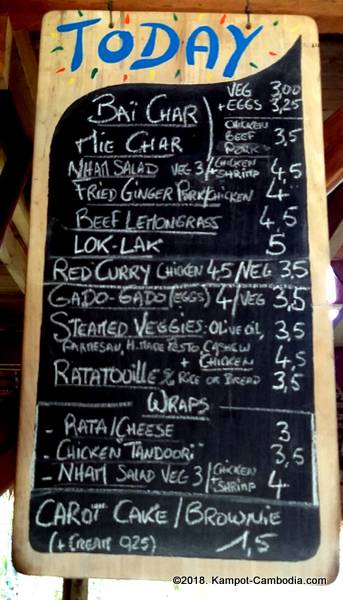 TODAY
BAÏ CHAR
VEG 3,00
+ EGGS 3,25
MIE CHAR
CHICKEN
BEEF
PORK
3,5
NHAM SALAD VEG 3/+ CHICKEN SHRIMP 4,5
FRIED GINGER PORK/CHICKEN 4
BEEF LEMONGRASS 4,5
LOK-LAK 5
RED CURRY CHICKEN 4,5/VEG 3,5
GADO-GADO (EGGS) 4/VEG 3,5
STEAMED VEGGIES: OLIVE OIL, 3,5
PARMESAN, H.MADE PESTO, CASHEW
+ CHICKEN 4,5
RATATOUILLE & RICE OR BREAD 3,5
WRAPS
- RATA/CHEESE 3
- CHICKEN "TANDOORI" 3,5
- NHAM SALAD VEG 3/+ CHICKEN SHRIMP 4
CAROT CAKE/BROWNIE
(+ CREAM 0,25) 1,5
©2018. Kampot-Cambodia.com